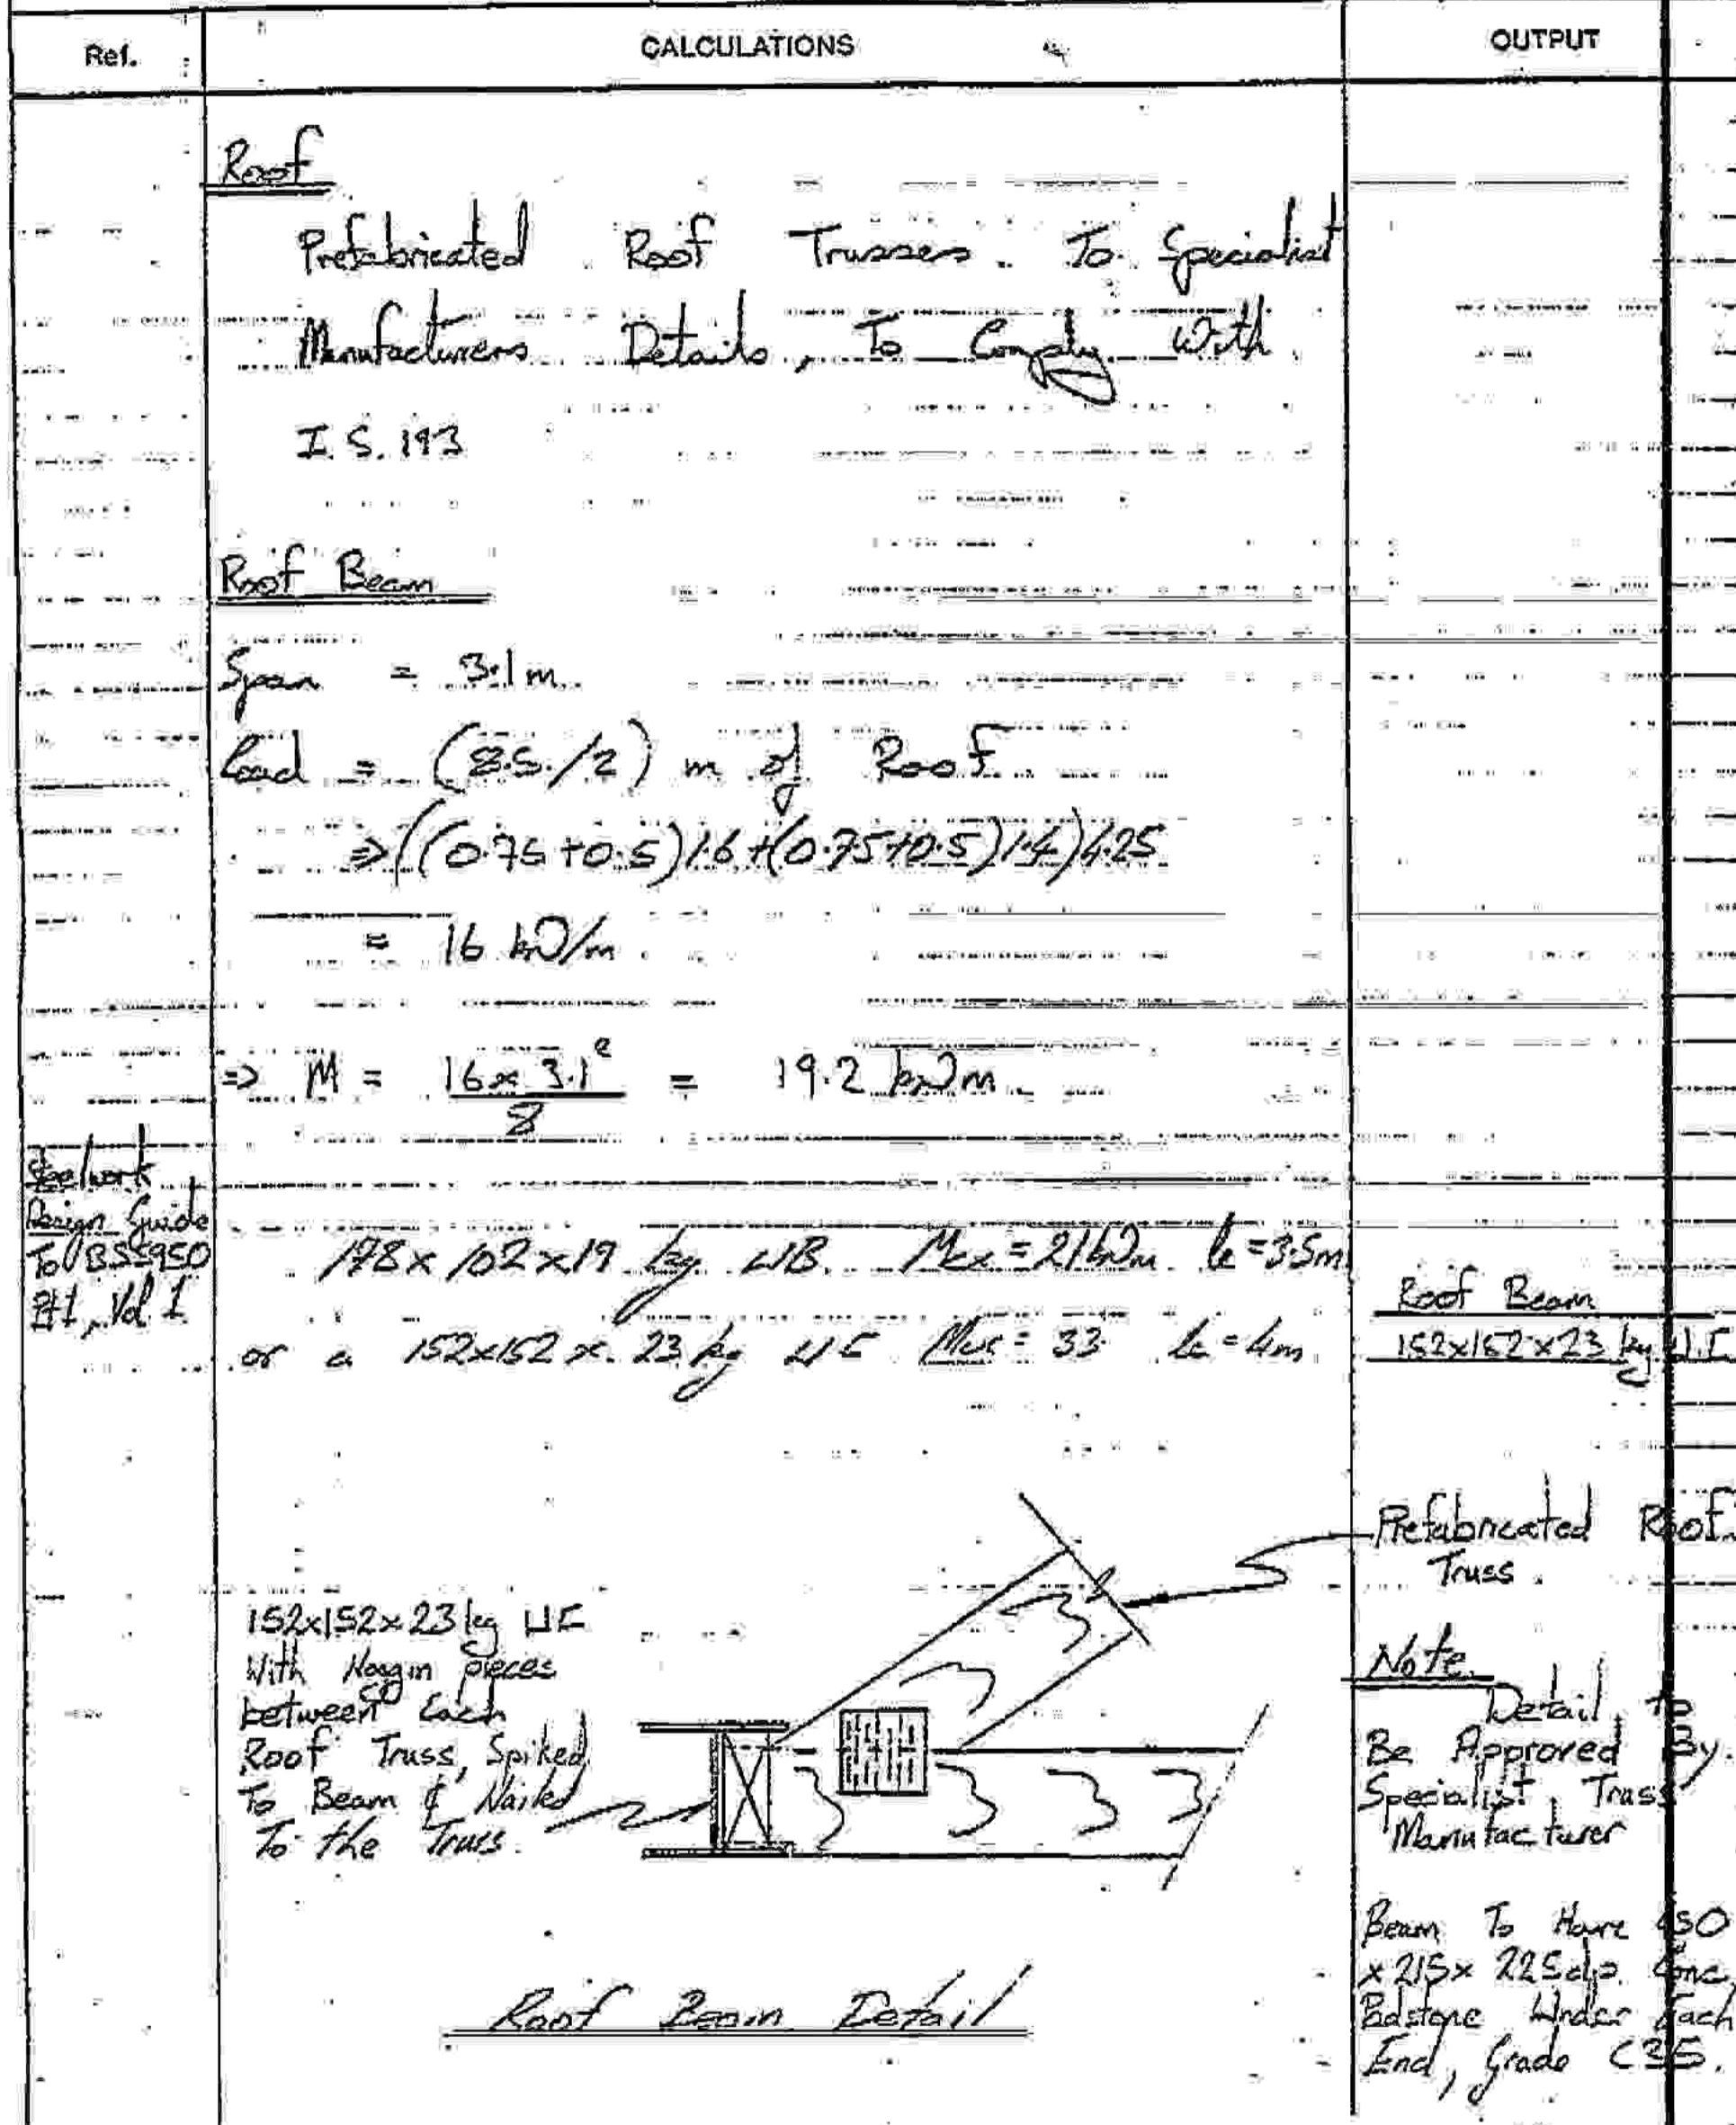 Ref. CALCULATIONS OUTPUT
Roof
Prefabricated Roof Trusses. To Specialist
Manufacturers Details, To Comply With
I.S. 193
Roof Beam
Span = 3.1m
Load = (8.5/2) m of Roof
⇒ ((0.75+0.5)1.6+(0.75+0.5)1.4)4.25
= 16 kN/m
⇒ M = 16 x 3.1² / 8 = 19.2 kNm
Steelwork
Design Guide
To BS5950
Pt1, Vol 1
178x102x19 kg UB. Mcx = 21kNm le = 3.5m
or a 152x152x 23kg UC = 33 Le = 4m
Roof Beam
152x152x23 kg U.C
Prefabricated Roof
Truss.
152x152x23kg UC
With Noggin pieces
between Each
Roof Truss, Spiked
To Beam & Nailed
To the Truss.
Note
Detail to
Be Approved By
Specialist Truss
Manufacturer
Beam To Have
x215x 225dp. Conc,
Padstone Under Each
End, Grade C35.
Roof Beam Detail